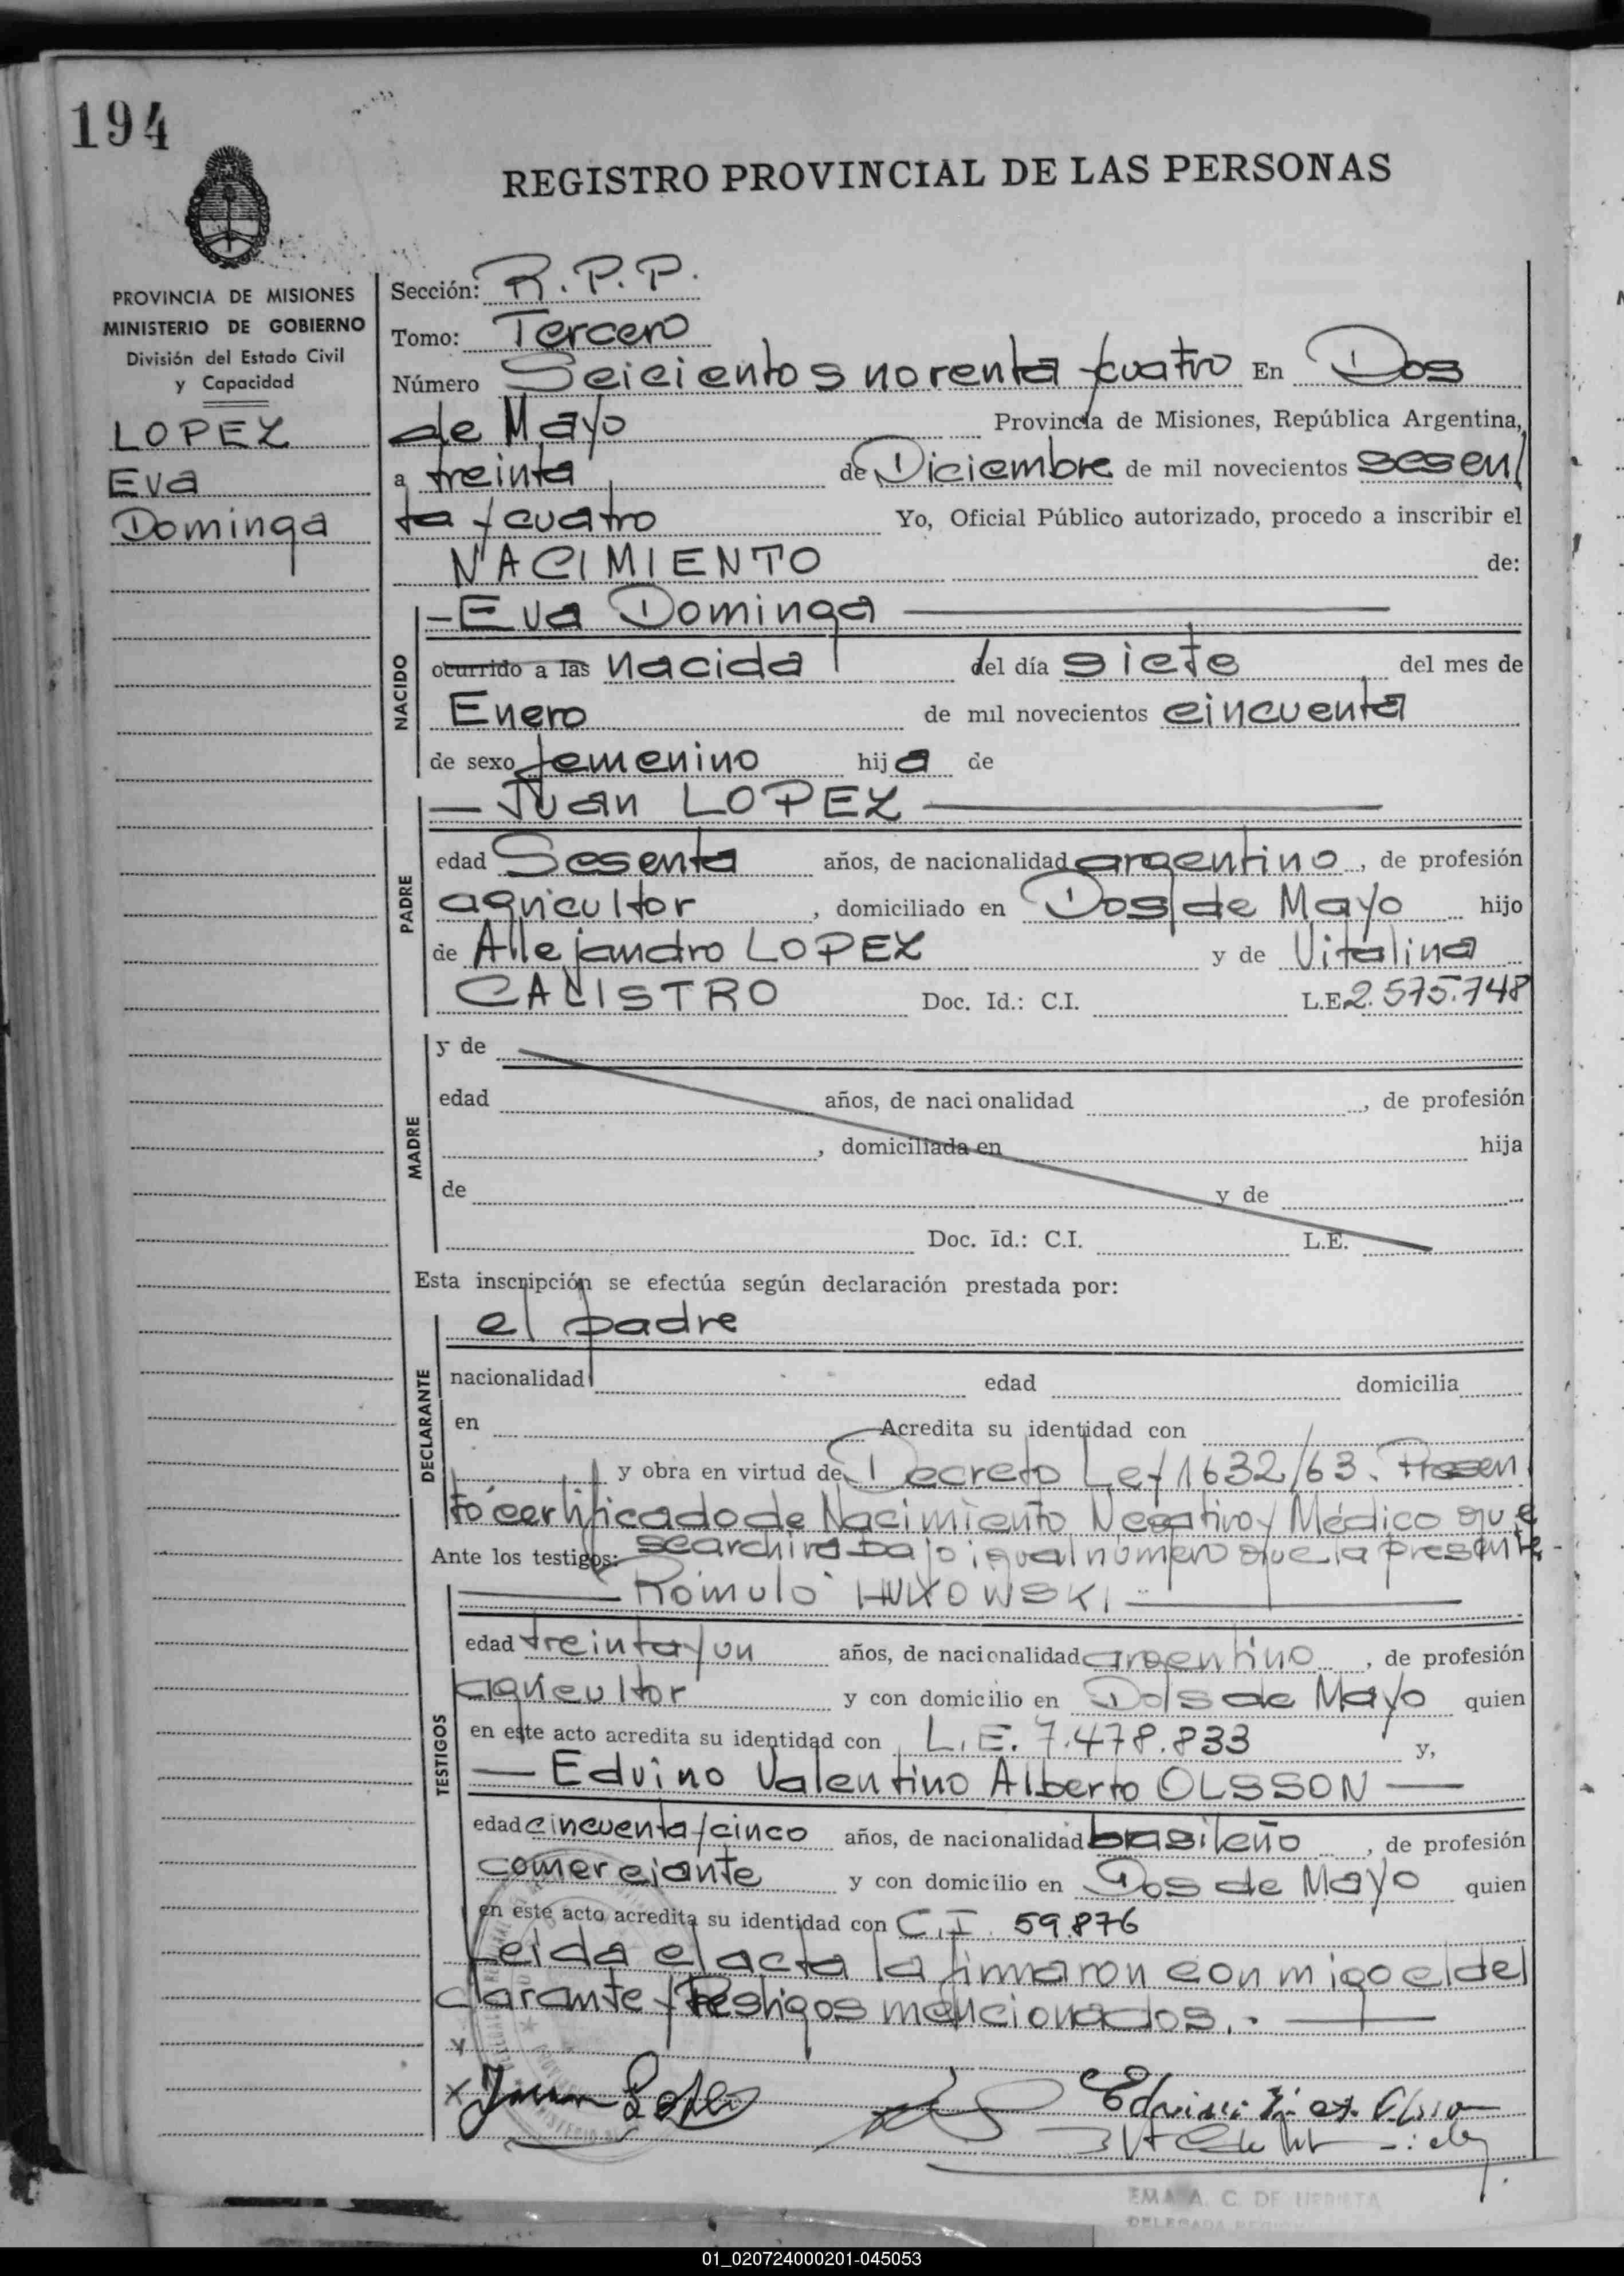 194
REGISTRO PROVINCIAL DE LAS PERSONAS
PROVINCIA DE MISIONES
MINISTERIO DE GOBIERNO
División del Estado Civil
y Capacidad
LOPEZ
Eva
Dominga
Sección: R.P.P.
Tomo: Tercero
Número Seicientos noventa y cuatro En Dos
de Mayo Provincia de Misiones, República Argentina,
a treinta de Diciembre de mil novecientos sesen
ta y cuatro Yo, Oficial Público autorizado, procedo a inscribir el
NACIMIENTO de:
NACIDO
- Eva Dominga
ocurrido a las nacida del día siete del mes de
Enero de mil novecientos cincuenta
de sexo femenino hija de
PADRE
Juan LOPEZ
edad Sesenta años, de nacionalidad argentino, de profesión
agricultor, domiciliado en Dos de Mayo hijo
de Allejandro LOPEZ y de Vitalina
CALISTRO Doc. Id.: C.I. L.E. 2.575.748
MADRE
y de
edad años, de nacionalidad , de profesión
, domiciliada en hija
de y de
Doc. Id.: C.I. L.E.
Esta inscripción se efectúa según declaración prestada por:
DECLARANTE
el padre
nacionalidad edad domicilia
en Acredita su identidad con
y obra en virtud de Decreto Ley 1632/63. Presen
tó certificado de Nacimiento Negativo y Médico que
se archiva bajo igual número que la presente.-
Ante los testigos:
TESTIGOS
Rómulo HUXOWSKI
edad treinta y un años, de nacionalidad argentino, de profesión
agricultor y con domicilio en Dos de Mayo quien
en este acto acredita su identidad con L.E. 7.478.833 y,
Edvino Valentino Alberto OLSSON
edad cincuenta y cinco años, de nacionalidad brasileño, de profesión
comerciante y con domicilio en Dos de Mayo quien
en este acto acredita su identidad con C.I. 59.876
Leída el acta la firmaron conmigo el del
clarante y Testigos mencionados.-
x Juan Lopez
EMA A. C. DE URRIETA
DELEGADA
01_020724000201-045053